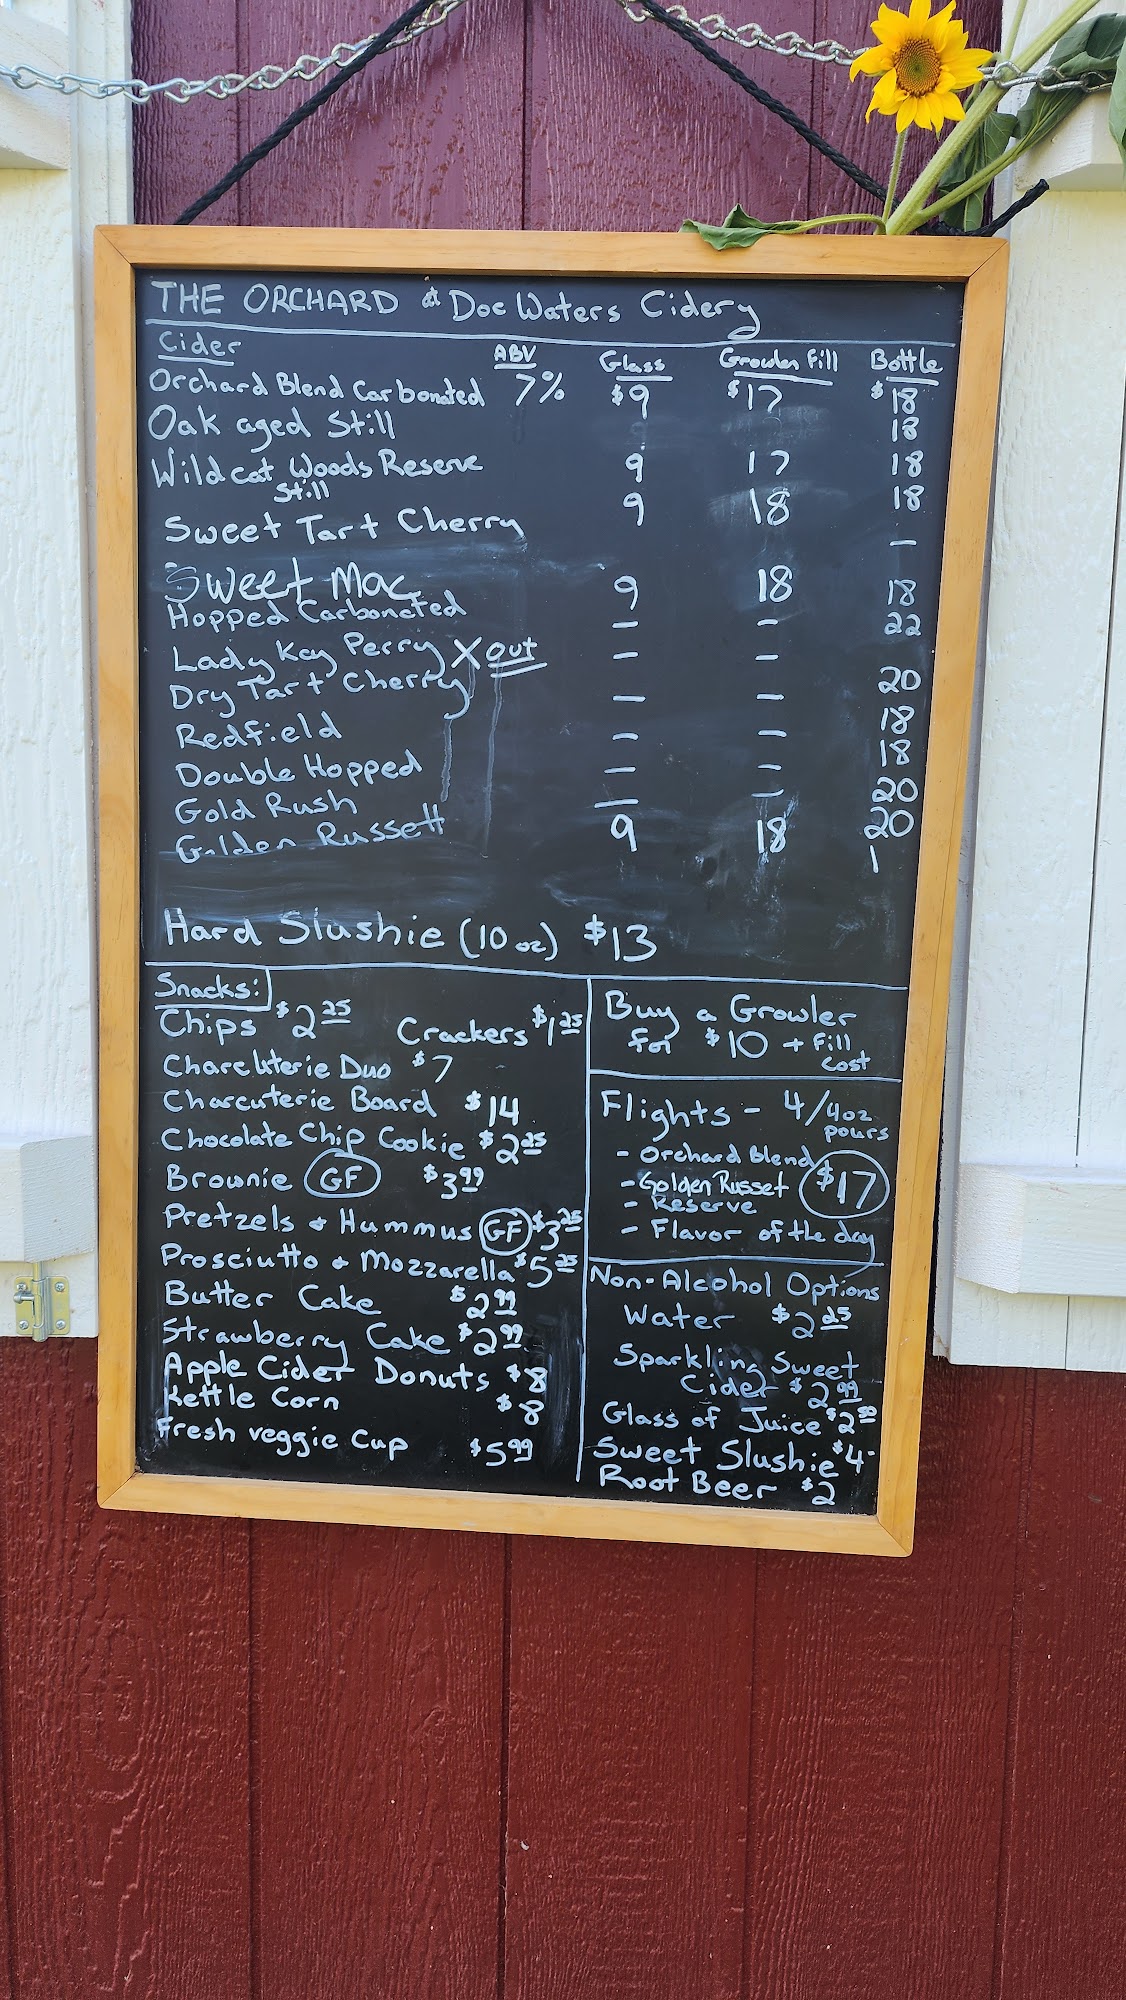 THE ORCHARD at Doc Waters Cidery
Cider ABV Glass Growler Fill Bottle
Orchard Blend Carbonated 7% $9 $17 $18
Oak aged Still 18
Wildcat Woods Reserve 9 17 18
Still
Sweet Tart Cherry 9 18 18
–
Sweet Mac 9 18 18
Hopped Carbonated – – 22
Lady Kay Perry X out – –
Dry Tart Cherry – – 20
Redfield – – 18
Double Hopped – – 18
Gold Rush – – 20
Golden Russett 9 18 20
Hard Slushie (10 oz) $13
Snacks:
Chips $2 25 Crackers $1 25
Charcuterie Duo $7
Charcuterie Board $14
Chocolate Chip Cookie $2 25
Brownie GF $3 99
Pretzels + Hummus GF $3 25
Prosciutto + Mozzarella $5 25
Butter Cake $2 99
Strawberry Cake $2 99
Apple Cider Donuts $8
Kettle Corn $8
Fresh veggie Cup $5 99
Buy a Growler
for $10 + fill
cost
Flights - 4/4oz
pours
- Orchard Blend
- Golden Russet $17
- Reserve
- Flavor of the day
Non-Alcohol Options
Water $2 25
Sparkling Sweet
Cider $2 99
Glass of Juice $2 99
Sweet Slushie $4-
Root Beer $2